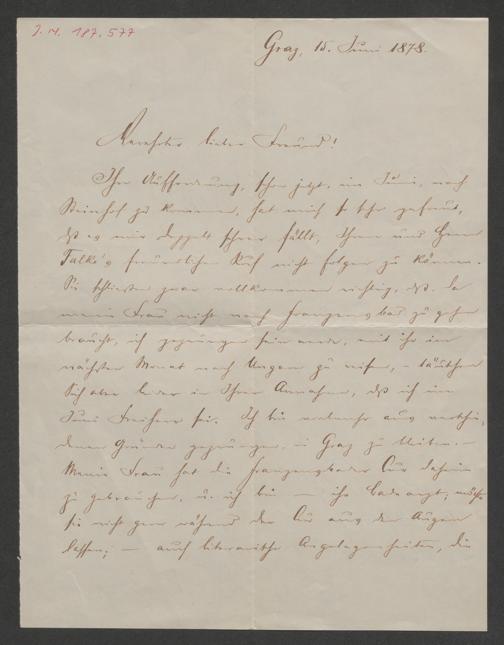 I. N. 187.577
Graz, 15. Juni 1878.
Verehrter lieber Freund!
Ihre Aufforderung, schon jetzt, im Juni, nach
Steinhof zu kommen, hat mich so sehr gefreut,
daß es mir doppelt schwer fällt, Ihrem und Herrn
Falke's freundlichen Ruf nicht folgen zu können.
Sie schließen zwar vollkommen richtig, daß, da
meine Frau nicht nach Franzensbad zu gehen
braucht, ich gezwungen sein werde, mit ihr im
nächsten Monat nach Ungarn zu reisen, – täuschen
Sich aber leider in Ihrer Annahme, daß ich im
Juni Freiherr sei. Ich bin vielmehr aus verschie-
denen Gründen gezwungen, in Graz zu bleiben. –
Meine Frau hat die Franzensbader Cur daheim
zu gebrauchen, u. ich bin – ihr Badearzt, möchte
sie nicht gern während der Cur aus den Augen
lassen; – auch literarische Angelegenheiten, die